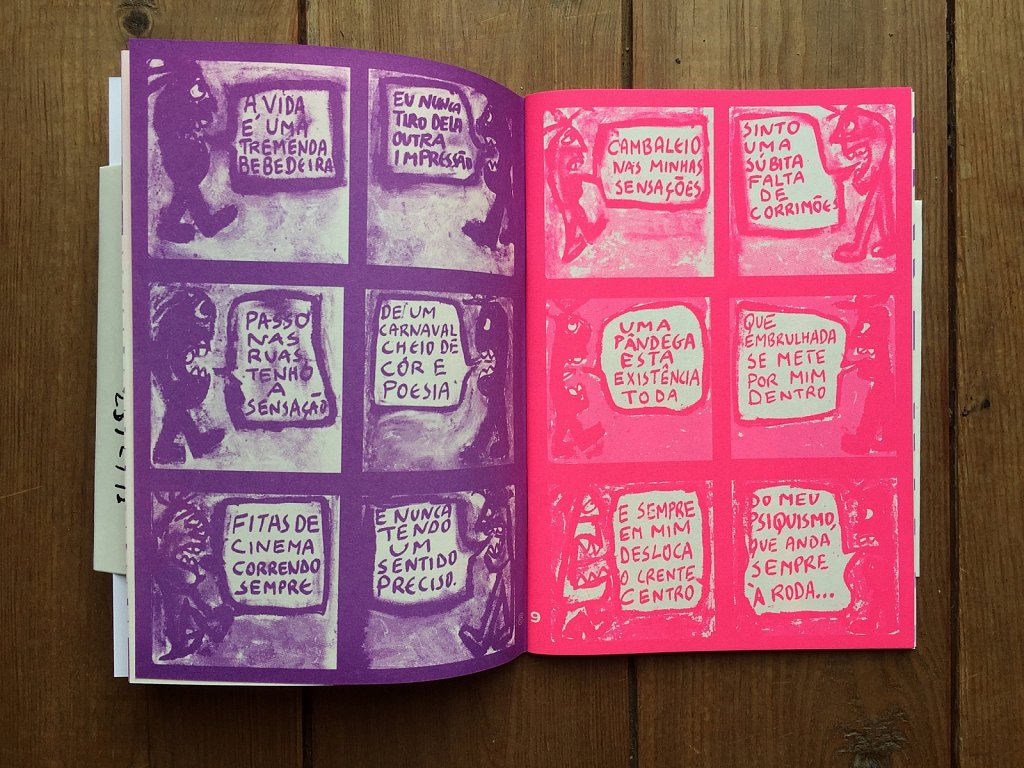 A VIDA
É UMA
TREMENDA
BEBEDEIRA
EU NUNCA
TIRO DELA
OUTRA
IMPRESSÃO
PASSO
NAS
RUAS
TENHO
A
SENSAÇÃO
DE UM
CARNAVAL
CHEIO DE
CÔR E
POESIA
FITAS DE
CINEMA
CORRENDO
SEMPRE
E NUNCA
TENDO
UM
SENTIDO
PRECISO.
CAMBALEIO
NAS MINHAS
SENSAÇÕES
SINTO
UMA
SÚBITA
FALTA
DE
CORRIMÕES
UMA
PÂNDEGA
ESTA
EXISTÊNCIA
TODA
QUE
EMBRULHADA
SE METE
POR MIM
DENTRO
E SEMPRE
EM MIM
DESLOCA
O CRENTE
CENTRO
DO MEU
PSIQUISMO,
QUE ANDA
SEMPRE
À RODA...
9